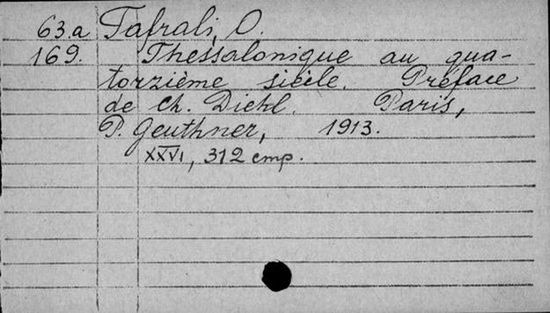 63.a Tafrali, O.
169. Thessalonique au qua-
torzième siècle. Préface
de Ch. Diehl. Paris,
P. Geuthner, 1913.
XXVI, 312 стр.